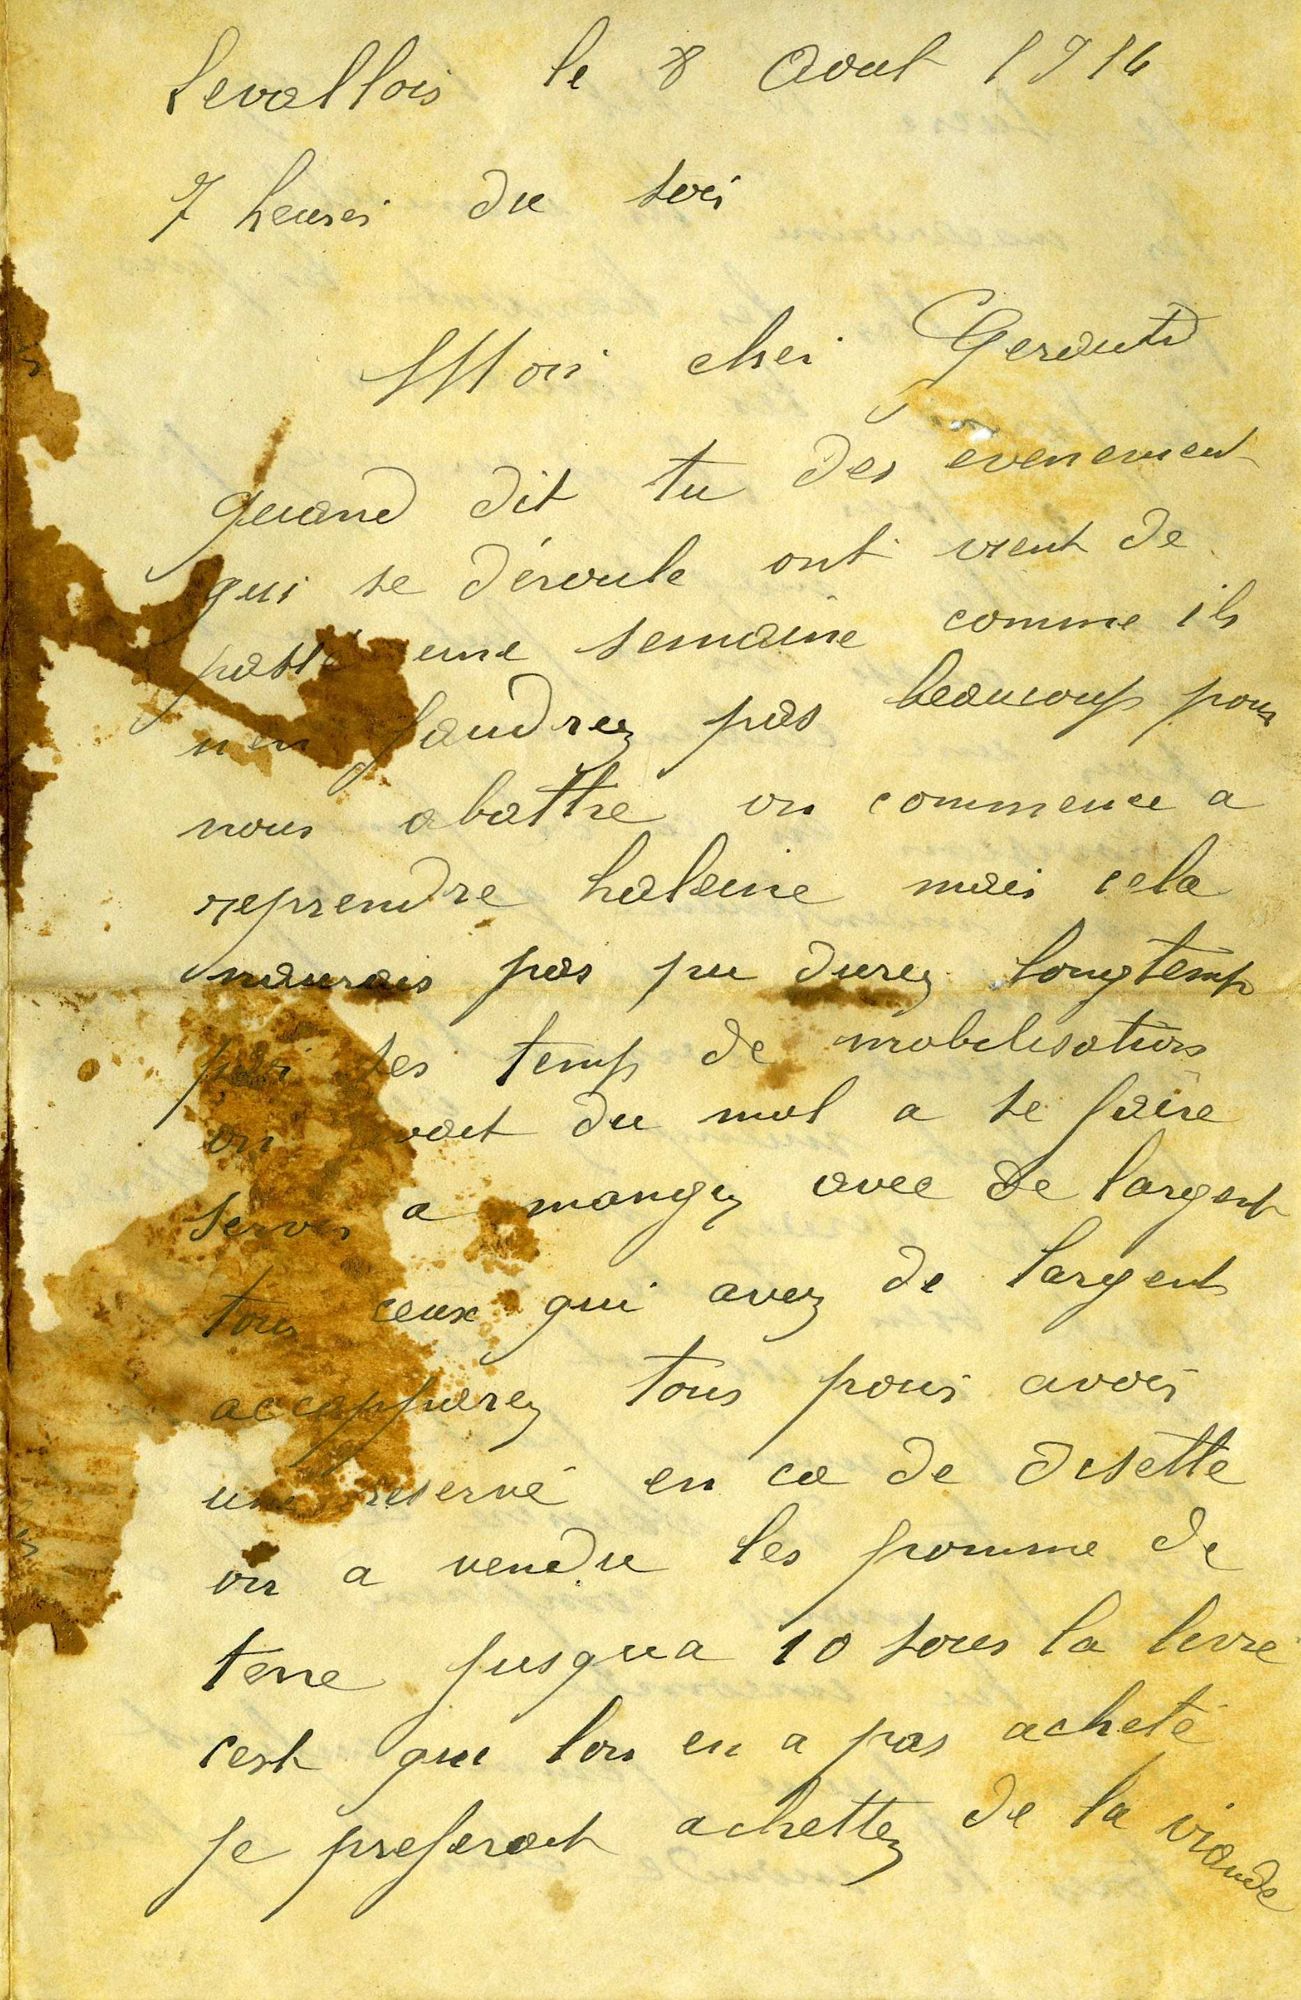 Levallois le 8 Aout 1914
7 heures du soir
Mon cher Gerautd
quand dit tu des evenement
qui se déroule ont vient de
passé une semaine comme ils
n'en faudrez pas beaucoup pour
nous abattre on commence a
reprendre haleine mais cela
naurais pas pu durez longtemp
par ses temps de mobilisation
on avait du mal a se faire
servir a mangez avec de largent
tous ceux qui avez de largent
accapparez tous pour avoir
une reservé en ca de disette
on a vendu les pomme de
terre jusqua 10 sous la livre
cest que lon en a pas acheté
je preferait achettez de la viande